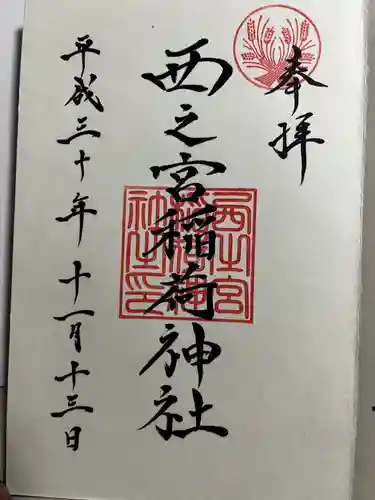 奉拝
西之宮稲荷神社
西之宮稲荷神社印
平成三十年十一月十三日